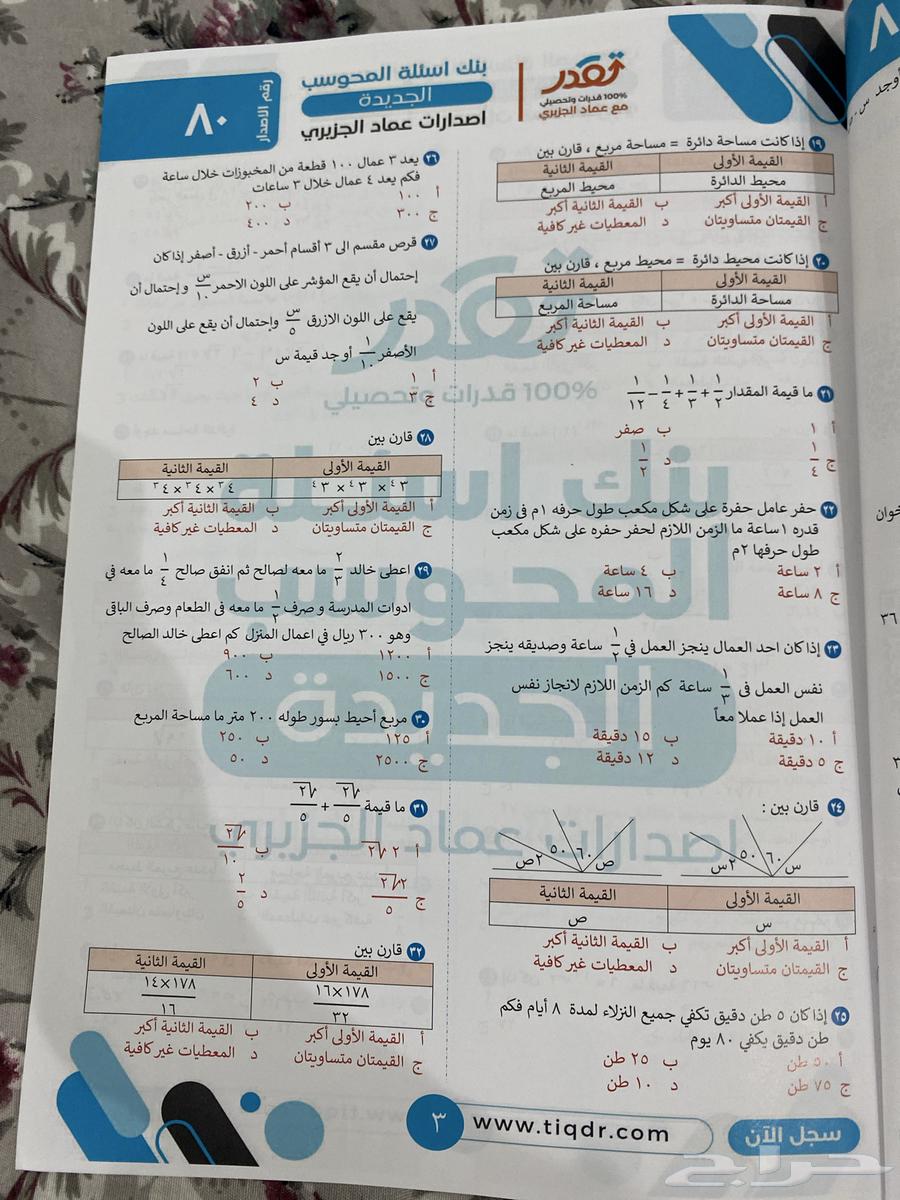 بنك اسئلة المحوسب
الجديدة
اصدارات عماد الجزيري
تقدر
100% قدرات وتحصيلي
مع عماد الجزيري
رقم الاصدار
٨٠
١٩ إذا كانت مساحة دائرة = مساحة مربع ، قارن بين
القيمة الأولى القيمة الثانية
محيط الدائرة محيط المربع
أ القيمة الأولى أكبر ب القيمة الثانية أكبر
ج القيمتان متساويتان د المعطيات غير كافية
٢٠ إذا كانت محيط دائرة = محيط مربع ، قارن بين
القيمة الأولى القيمة الثانية
مساحة الدائرة مساحة المربع
أ القيمة الأولى أكبر ب القيمة الثانية أكبر
ج القيمتان متساويتان د المعطيات غير كافية
٢١ ما قيمة المقدار ١/٢ + ١/٣ + ١/٤ − ١/١٢
أ ١ ب صفر
ج ١/٤ د ١/٢
٢٢ حفر عامل حفرة على شكل مكعب طول حرفه ١م في زمن
قدره ١ ساعة ما الزمن اللازم لحفر حفره على شكل مكعب
طول حرفها ٢م
أ ٢ ساعة ب ٤ ساعة
ج ٨ ساعة د ١٦ ساعة
٢٣ إذا كان احد العمال ينجز العمل في ١/٢ ساعة وصديقه ينجز
نفس العمل في ١/٣ ساعة كم الزمن اللازم لانجاز نفس
العمل إذا عملا معاً
أ ١٠ دقيقة ب ١٥ دقيقة
ج ٥ دقيقة د ١٢ دقيقة
٢٤ قارن بين :
س ٦٠ ٥٠ ٢س
ص ٦٠ ٥٠ ٢ص
القيمة الأولى القيمة الثانية
س ص
أ القيمة الأولى أكبر ب القيمة الثانية أكبر
ج القيمتان متساويتان د المعطيات غير كافية
٢٥ إذا كان ٥ طن دقيق تكفي جميع النزلاء لمدة ٨ أيام فكم
طن دقيق يكفي ٨٠ يوم
أ ٥٠ طن ب ٢٥ طن
ج ٧٥ طن د ١٠ طن
٢٦ يعد ٣ عمال ١٠٠ قطعة من المخبوزات خلال ساعة
فكم يعد ٤ عمال خلال ٣ ساعات
أ ١٠٠ ب ٢٠٠
ج ٣٠٠ د ٤٠٠
٢٧ قرص مقسم الى ٣ أقسام أحمر - أزرق - أصفر إذا كان
إحتمال أن يقع المؤشر على اللون الاحمر س/١٠ و إحتمال أن
يقع على اللون الازرق س/٥ وإحتمال أن يقع على اللون
الأصفر ١/١٠ أوجد قيمة س
أ ١ ب ٢
ج ٣ د ٤
٢٨ قارن بين
القيمة الأولى القيمة الثانية
٣^٤ × ٣^٤ × ٣^٤ ٤^٣ × ٤^٣ × ٤^٣
أ القيمة الأولى أكبر ب القيمة الثانية أكبر
ج القيمتان متساويتان د المعطيات غير كافية
٢٩ اعطى خالد ٢/٣ ما معه لصالح ثم انفق صالح ١/٤ ما معه في
ادوات المدرسة و صرف ١/٢ ما معه فى الطعام وصرف الباقى
وهو ٣٠٠ ريال في اعمال المنزل كم اعطى خالد الصالح
أ ١٢٠٠ ب ٩٠٠
ج ١٥٠٠ د ٦٠٠
٣٠ مربع أحيط بسور طوله ٢٠٠ متر ما مساحة المربع
أ ١٢٥ ب ٢٥٠
ج ٢٥٠٠ د ٥٠
٣١ ما قيمة √٢/٥ + √٢/٥
أ ٢√٢ ب √٢/١٠
ج ٢√٢/٥ د ٢/٥
٣٢ قارن بين
القيمة الأولى القيمة الثانية
١٧٨×١٦/٣٢ ١٧٨×١٤/١٦
أ القيمة الأولى أكبر ب القيمة الثانية أكبر
ج القيمتان متساويتان د المعطيات غير كافية
تقدر
100% قدرات وتحصيلي
بنك اسئلة
المحوسب
الجديدة
اصدارات عماد الجزيري
سجل الآن
www.tiqdr.com
٣
حراج